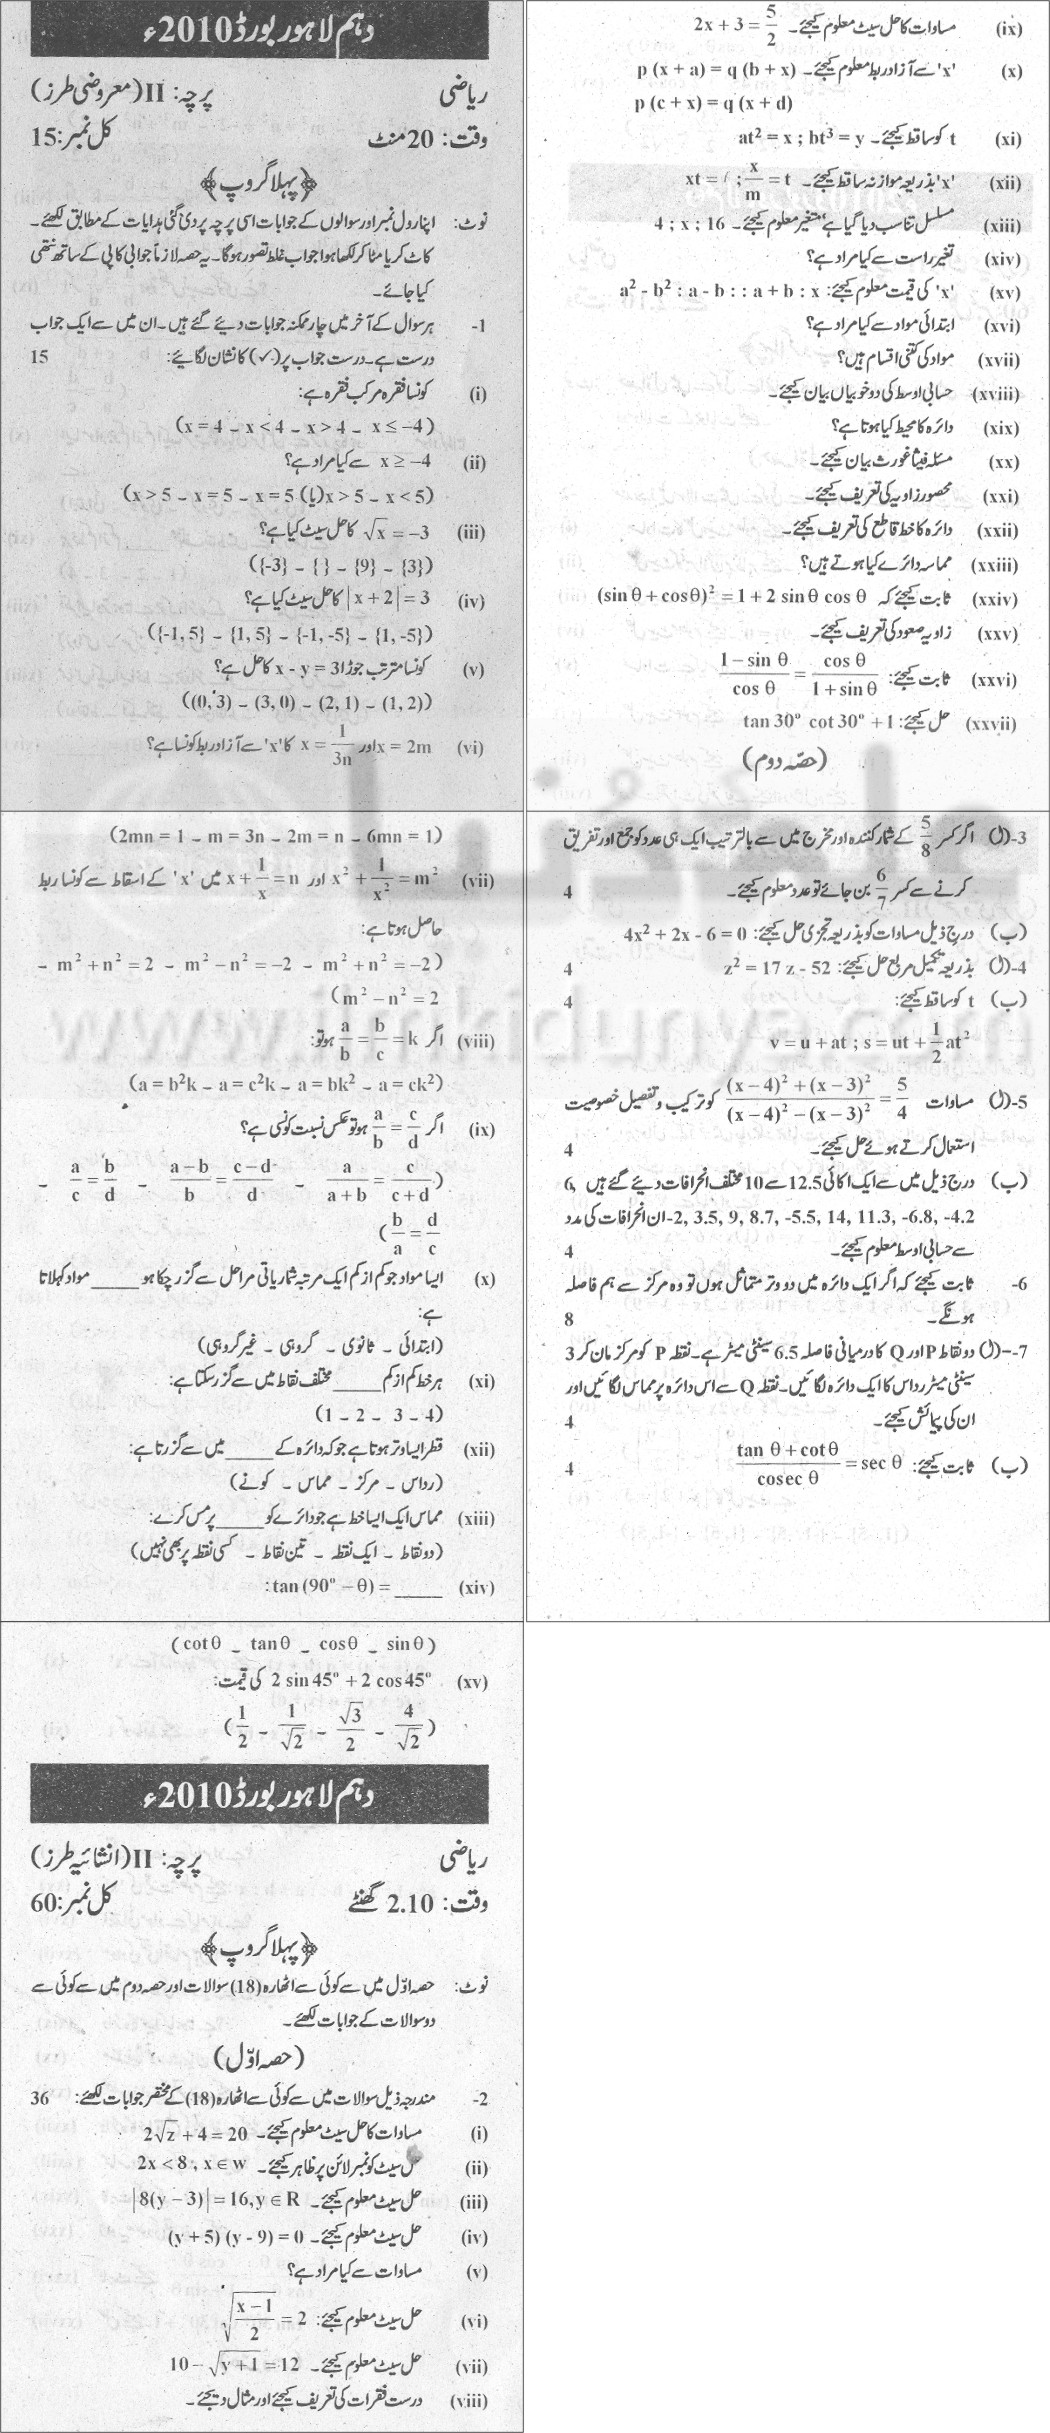 دہم لاہور بورڈ 2010ء
ریاضی پرچہ: II (معروضی طرز)
وقت: 20 منٹ کل نمبر: 15
﴿پہلا گروپ﴾
نوٹ: اپنا رول نمبر اور سوالوں کے جوابات اسی پرچہ پر دی گئی ہدایات کے مطابق لکھئے۔
کاٹ کر یا مٹا کر لکھا ہوا جواب غلط تصور ہوگا۔ یہ حصہ لازماً جوابی کاپی کے ساتھ نتھی
کیا جائے۔
1- ہر سوال کے آخر میں چار ممکنہ جوابات دیئے گئے ہیں۔ ان میں سے ایک جواب
درست ہے۔ درست جواب پر (✓) کا نشان لگائیے: 15
(i) کونسا فقرہ مرکب فقرہ ہے:
(x = 4 – x < 4 – x > 4 – x ≤ –4)
(ii) x ≥ –4 سے کیا مراد ہے؟
(x > 5 – x = 5 – x = 5 (یا) x > 5 – x < 5)
(iii) √x = –3 کا حل سیٹ کیا ہے؟
({-3} – { } – {9} – {3})
(iv) |x + 2| = 3 کا حل سیٹ کیا ہے؟
({-1, 5} – {1, 5} – {-1, -5} – {1, -5})
(v) کونسا مترتب جوڑا x - y = 3 کا حل ہے؟
((0, 3) – (3, 0) – (2, 1) – (1, 2))
(vi) x = 2m اور x = 1/3n کا 'x' سے آزاد ربط کونسا ہے؟
(2mn = 1 – m = 3n – 2m = n – 6mn = 1)
(vii) x² + 1/x² = m² اور x + 1/x = n میں 'x' کے اسقاط سے کونسا ربط
حاصل ہوتا ہے:
(m² + n² = 2 – m² – n² = –2 – m² + n² = –2 –
m² – n² = 2)
(viii) اگر a/b = b/c = k ہو تو:
(a = b²k – a = c²k – a = bk² – a = ck²)
(ix) اگر a/b = c/d ہو تو عکس نسبت کونسی ہے؟
(a/c = b/d – (a–b)/b = (c–d)/d – a/(a+b) = c/(c+d) –
b/a = d/c)
(x) ایسا مواد جو کم از کم ایک مرتبہ شماریاتی مراحل سے گزر چکا ہو _____ مواد کہلاتا
ہے:
(ابتدائی - ثانوی - گروہی - غیر گروہی)
(xi) ہر خط کم از کم _____ مختلف نقاط میں سے گزر سکتا ہے:
(1 – 2 – 3 – 4)
(xii) قطر ایسا وتر ہوتا ہے جو کہ دائرہ کے _____ میں سے گزرتا ہے:
(رداس - مرکز - مماس - کونے)
(xiii) مماس ایک ایسا خط ہے جو دائرے کو _____ پر مس کرے:
(دو نقاط - ایک نقطہ - تین نقاط - کسی نقطہ پر بھی نہیں)
(xiv) tan (90° – θ) = _____ :
(cot θ – tan θ – cos θ – sin θ)
(xv) 2 sin 45° + 2 cos 45° کی قیمت:
(1/2 – 1/√2 – √3/2 – 4/√2)
دہم لاہور بورڈ 2010ء
ریاضی پرچہ: II (انشائیہ طرز)
وقت: 2.10 گھنٹے کل نمبر: 60
﴿پہلا گروپ﴾
نوٹ: حصہ اوّل میں سے کوئی سے اٹھارہ (18) سوالات اور حصہ دوم میں سے کوئی سے
دو سوالات کے جوابات لکھئے۔
(حصہ اوّل)
2- مندرجہ ذیل سوالات میں سے کوئی سے اٹھارہ (18) کے مختصر جوابات لکھئے: 36
(i) مساوات کا حل سیٹ معلوم کیجئے۔ 2√z + 4 = 20
(ii) حل سیٹ کو نمبر لائن پر ظاہر کیجئے۔ 2x < 8, x ∈ w
(iii) حل سیٹ معلوم کیجئے۔ |8(y – 3)| = 16, y ∈ R
(iv) حل سیٹ معلوم کیجئے۔ (y + 5) (y - 9) = 0
(v) مساوات سے کیا مراد ہے؟
(vi) حل سیٹ معلوم کیجئے: √((x – 1)/2) = 2
(vii) حل سیٹ معلوم کیجئے۔ 10 – √(y + 1) = 12
(viii) درست فقرات کی تعریف کیجئے اور مثال دیجئے۔
(ix) مساوات کا حل سیٹ معلوم کیجئے۔ 2x + 3 = 5/2
(x) 'x' سے آزاد ربط معلوم کیجئے۔ p (x + a) = q (b + x)
p (c + x) = q (x + d)
(xi) t کو ساقط کیجئے۔ at² = x ; bt³ = y
(xii) 'x' بذریعہ موازنہ ساقط کیجئے۔ xt = ; x/m = t
(xiii) مسلسل تناسب دیا گیا ہے متغیر معلوم کیجئے۔ 4 ; x ; 16
(xiv) تغیر راست سے کیا مراد ہے؟
(xv) 'x' کی قیمت معلوم کیجئے: a² - b² : a - b : : a + b : x
(xvi) ابتدائی مواد سے کیا مراد ہے؟
(xvii) مواد کی کتنی اقسام ہیں؟
(xviii) حسابی اوسط کی دو خوبیاں بیان کیجئے۔
(xix) دائرہ کا محیط کیا ہوتا ہے؟
(xx) مسئلہ فیثاغورث بیان کیجئے۔
(xxi) محصور زاویہ کی تعریف کیجئے۔
(xxii) دائرہ کا خط قاطع کی تعریف کیجئے۔
(xxiii) مماسہ دائرے کیا ہوتے ہیں؟
(xxiv) ثابت کیجئے کہ (sin θ + cos θ)² = 1 + 2 sin θ cos θ
(xxv) زاویہ صعود کی تعریف کیجئے۔
(xxvi) ثابت کیجئے: (1 – sin θ)/cos θ = cos θ/(1 + sin θ)
(xxvii) حل کیجئے: tan 30° cot 30° + 1
(حصہ دوم)
3-(ا) اگر کسر 5/8 کے شمار کنندہ اور مخرج میں سے بالترتیب ایک ہی عدد کو جمع اور تفریق
کرنے سے کسر 6/7 بن جائے تو عدد معلوم کیجئے۔ 4
(ب) درج ذیل مساوات کو بذریعہ تجزی حل کیجئے: 4x² + 2x - 6 = 0
4-(ا) بذریعہ تکمیل مربع حل کیجئے: z² = 17 z - 52 4
(ب) t کو ساقط کیجئے: 4
v = u + at ; s = ut + 1/2 at²
5-(ا) مساوات ((x – 4)² + (x – 3)²)/((x – 4)² – (x – 3)²) = 5/4 کو ترکیب و تفصیل خصوصیت
استعمال کرتے ہوئے حل کیجئے۔ 4
(ب) درج ذیل میں سے ایک اکائی 12.5 سے 10 مختلف انحرافات دیئے گئے ہیں 6,
-2, 3.5, 9, 8.7, -5.5, 14, 11.3, -6.8, -4.2 ان انحرافات کی مدد
سے حسابی اوسط معلوم کیجئے۔ 4
6- ثابت کیجئے کہ اگر ایک دائرہ میں دو وتر متماثل ہوں تو وہ مرکز سے ہم فاصلہ
ہونگے۔ 8
7-(ا) دو نقاط P اور Q کا درمیانی فاصلہ 6.5 سینٹی میٹر ہے۔ نقطہ P کو مرکز مان کر 3
سینٹی میٹر رداس کا ایک دائرہ لگائیں۔ نقطہ Q سے اس دائرہ پر مماس لگائیں اور
ان کی پیمائش کیجئے۔ 4
(ب) ثابت کیجئے: (tan θ + cot θ)/cosec θ = sec θ 4